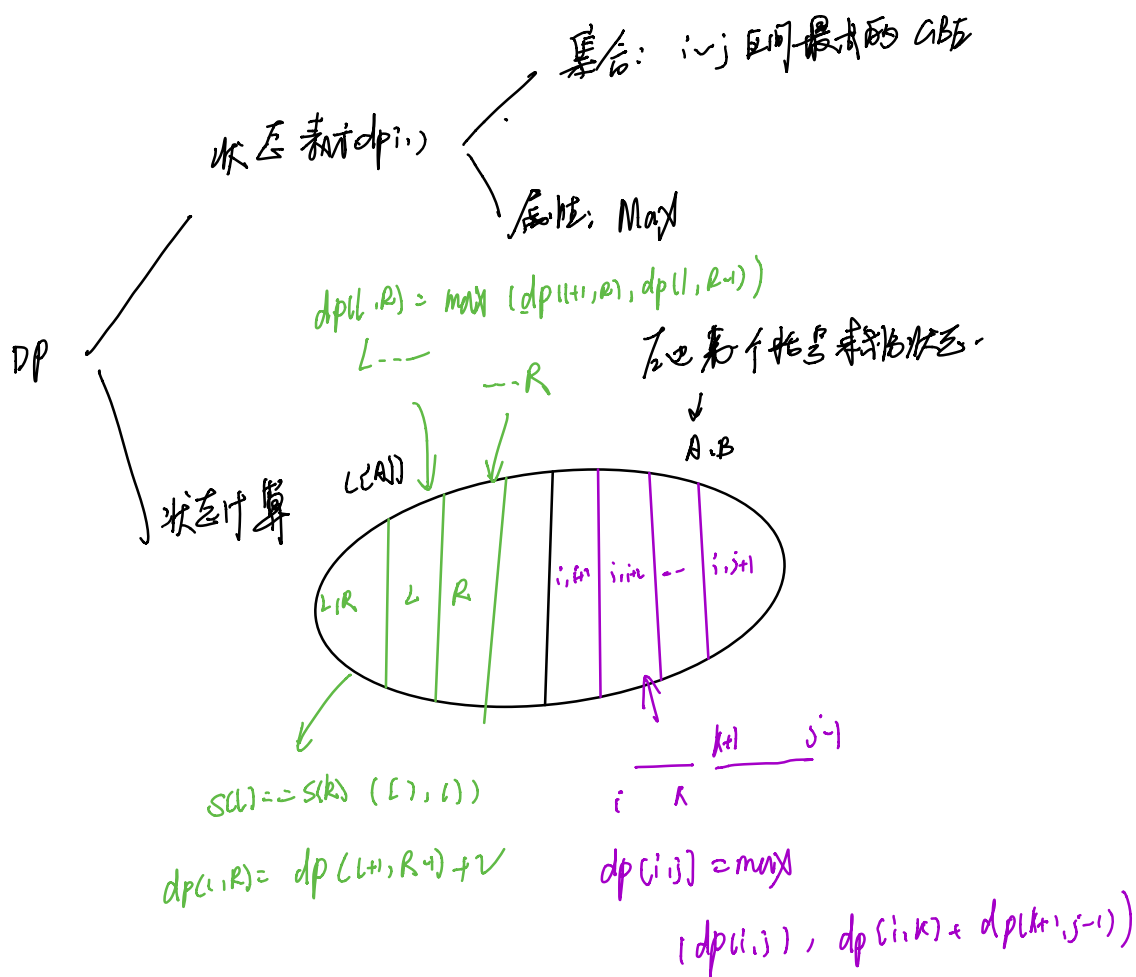 集合: i~j 区间最大的 GBE
状态表示dp i,j
属性: Max
dp(l,R) = max (dp(l+1,R), dp(l,R-1))
DP
L----
----R
A.B
L[A]]
状态计算
L,R
L
R
i,i+1
i,i+2
---
i,j+1
k+1
j-1
i
k
S(l)==S(R) ([ ), ( ))
dp(l,R)= dp(l+1,R-1)+2
dp[i,j] = max
(dp(i,j), dp(i,k) + dp(k+1,j-1))